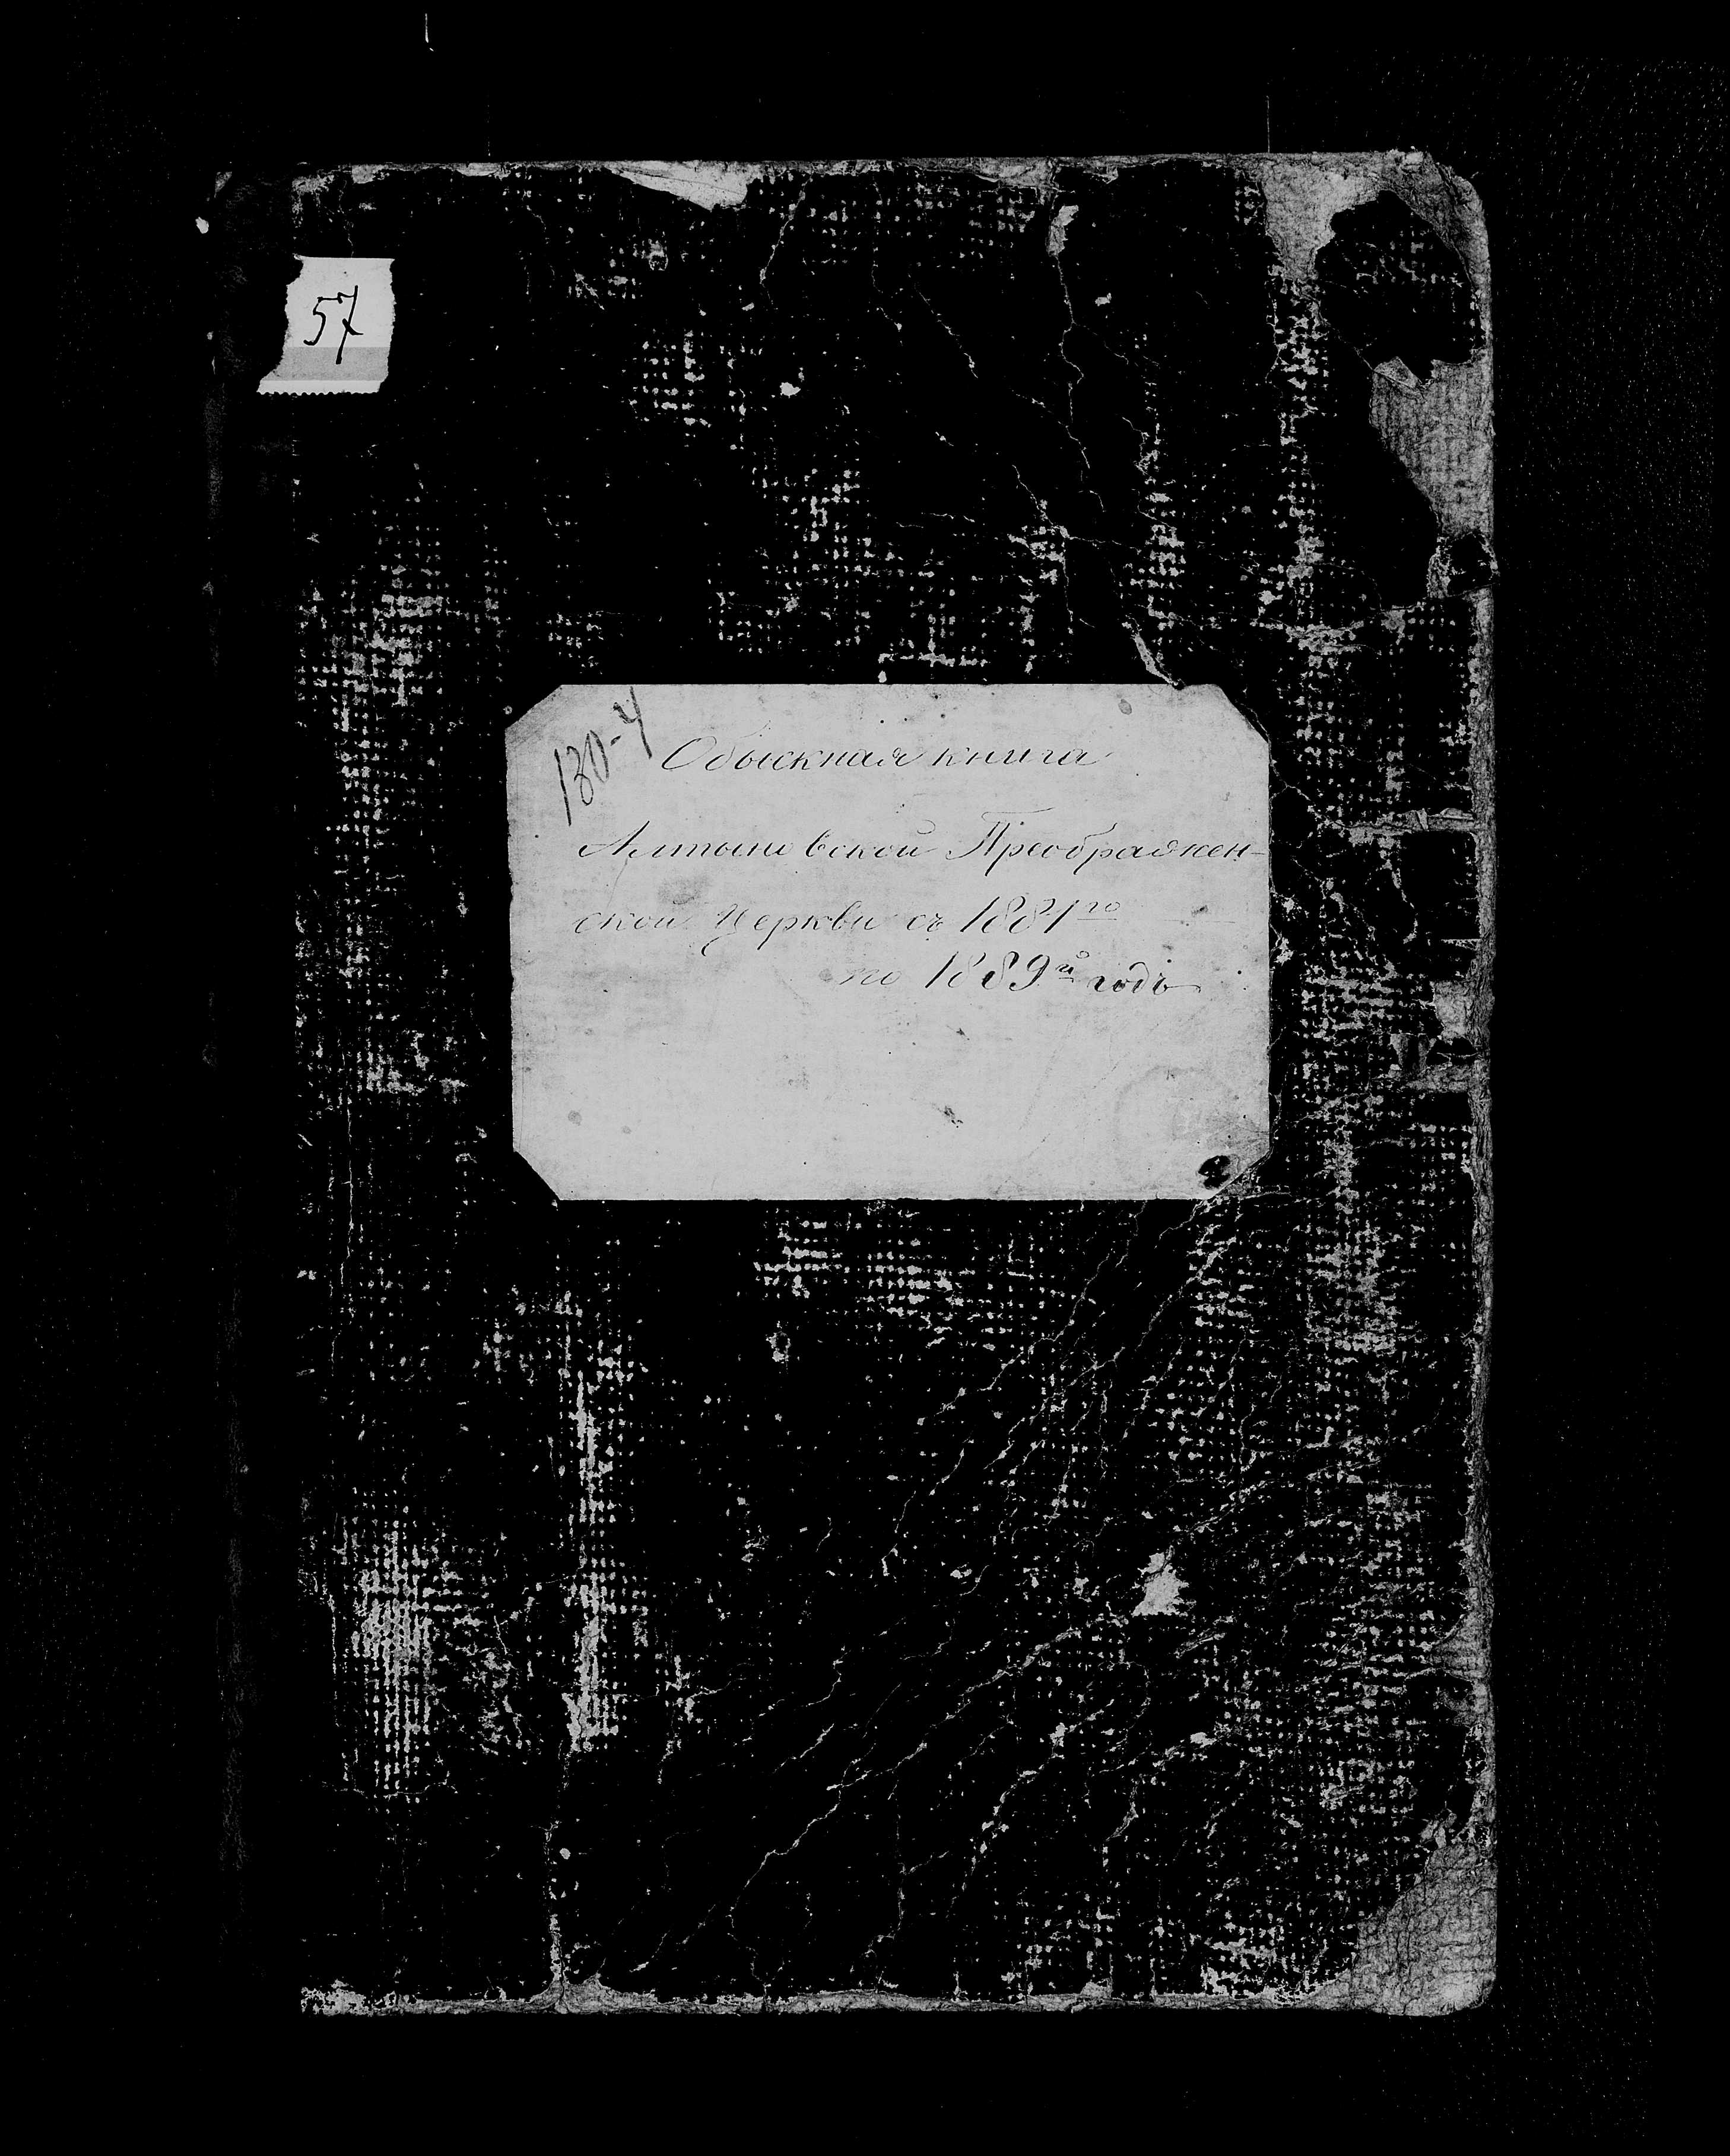 57
130-4
Обыскная книга
Алтыновской Преображен-
ской Церкви съ 1881го
по 1889й годъ